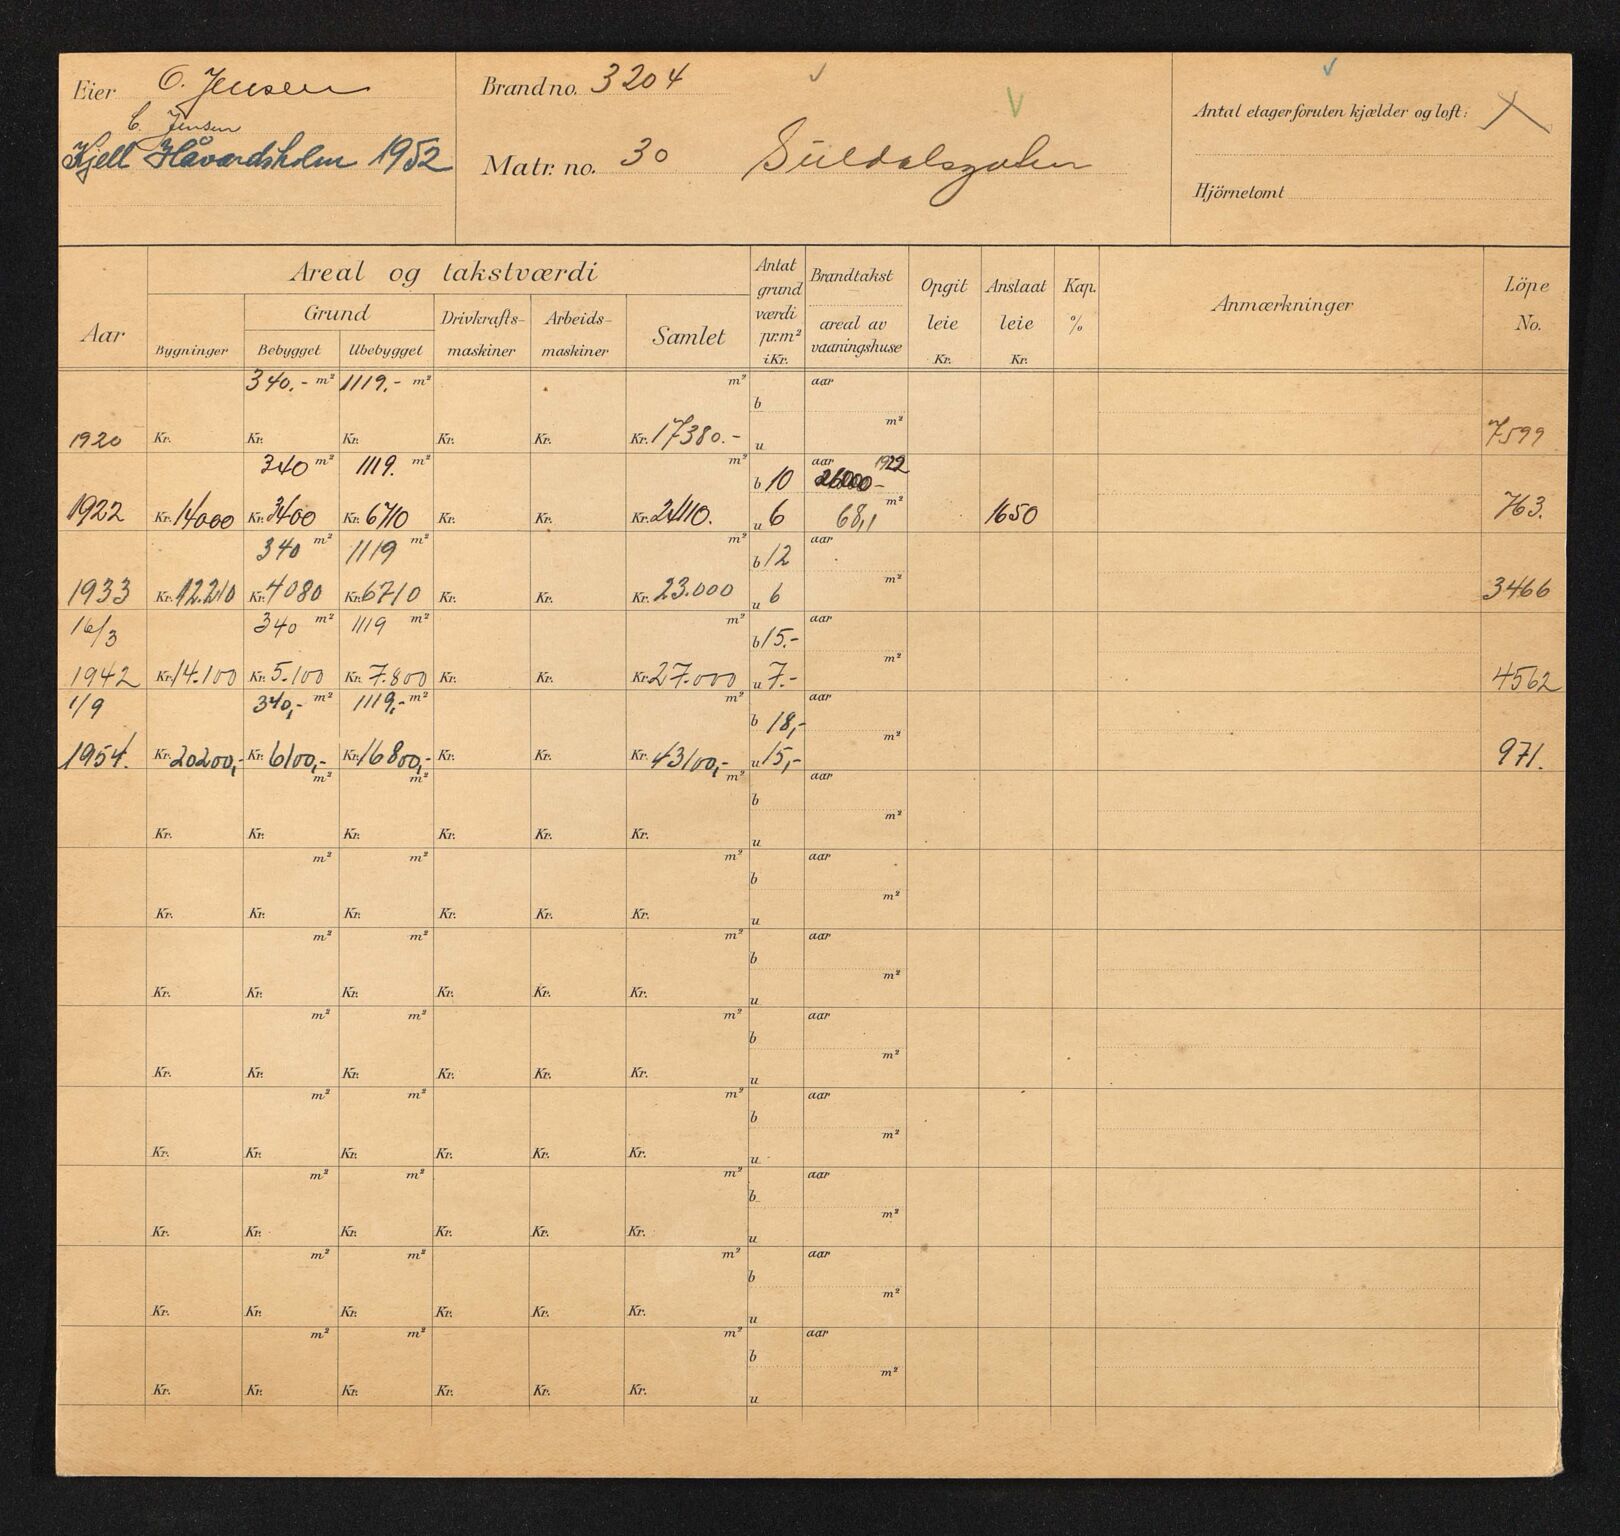 Eier O. Jensen
C. Jensen
Kjell Håvardsholm 1952
Brand no. 3204
Matr. no. 30 Suldalsgaten
Antal etager foruten kjælder og loft:
Hjörnetomt
Aar
Areal og takstværdi
Bygninger
Grund
Bebygget Ubebygget
Drivkrafts-
maskiner
Arbeids-
maskiner
Samlet
Antat
grund
værdi
pr.m²
i Kr.
Brandtakst
areal av
vaaningshuse
Opgit
leie
Kr.
Anslaat
leie
Kr.
Kap.
%
Anmærkninger
Löpe
No.
340.- m² 1119.- m² m² aar
b
m²
1920 Kr. Kr. Kr. Kr. Kr. Kr. 17380.- u 7599
340 m² 1119. m² m² aar 1922
b 10 26000-
m²
1922 Kr. 14000 Kr. 3400 Kr. 6710 Kr. Kr. Kr. 24110. u 6 68,1 1650 763.
340 m² 1119 m² m² aar
b 12
m²
1933 Kr. 12.210 Kr. 4080 Kr. 6710 Kr. Kr. Kr. 23.000 u 6 3466
16/3 340 m² 1119 m² m² aar
b 15.-
m²
1942 Kr. 14.100 Kr. 5.100 Kr. 7.800 Kr. Kr. Kr. 27.000 u 7.- 4562
1/9 340,- m² 1119,- m² m² aar
b 18,-
m²
1954. Kr. 20200,- Kr. 6100,- Kr. 16800,- Kr. Kr. Kr. 43100,- u 15,- 971.
m² m² m² aar
b
m²
Kr. Kr. Kr. Kr. Kr. Kr. u
m² m² m² aar
b
m²
Kr. Kr. Kr. Kr. Kr. Kr. u
m² m² m² aar
b
m²
Kr. Kr. Kr. Kr. Kr. Kr. u
m² m² m² aar
b
m²
Kr. Kr. Kr. Kr. Kr. Kr. u
m² m² m² aar
b
m²
Kr. Kr. Kr. Kr. Kr. Kr. u
m² m² m² aar
b
m²
Kr. Kr. Kr. Kr. Kr. Kr. u
m² m² m² aar
b
m²
Kr. Kr. Kr. Kr. Kr. Kr. u
m² m² m² aar
b
m²
Kr. Kr. Kr. Kr. Kr. Kr. u